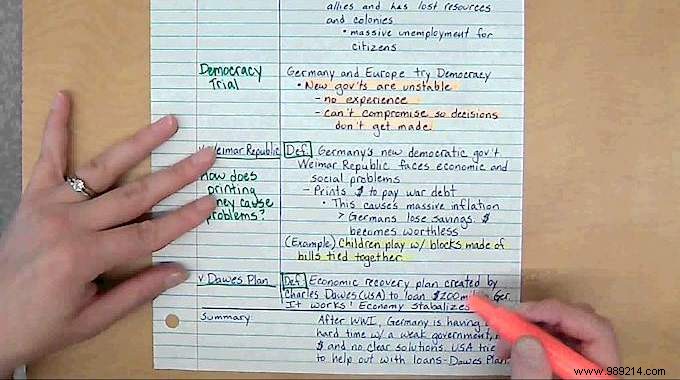 allies and has lost resources
and colonies
• massive unemployment for
citizens
Democracy
Trial
Germany and Europe try Democracy
• New gov'ts are unstable
- no experience
- can't compromise so decisions
don't get made
Weimar Republic
Def: Germany's new democratic gov't
Weimar Republic faces economic and
social problems
How does
printing
cause
problems?
- Prints $ to pay war debt
• This causes massive inflation
> Germans lose savings. $
becomes worthless
(Example) Children play w/ blocks made of
bills tied together
v Dawes Plan
Def: Economic recovery plan created by
Charles Dawes (USA) to loan $200 Ger.
It works! Economy stabalizes
Summary
After WWI, Germany is having
hard time w/ a weak government,
$ and no clear solutions. USA trie
to help out with loans-Dawes Plan
www.989214.com